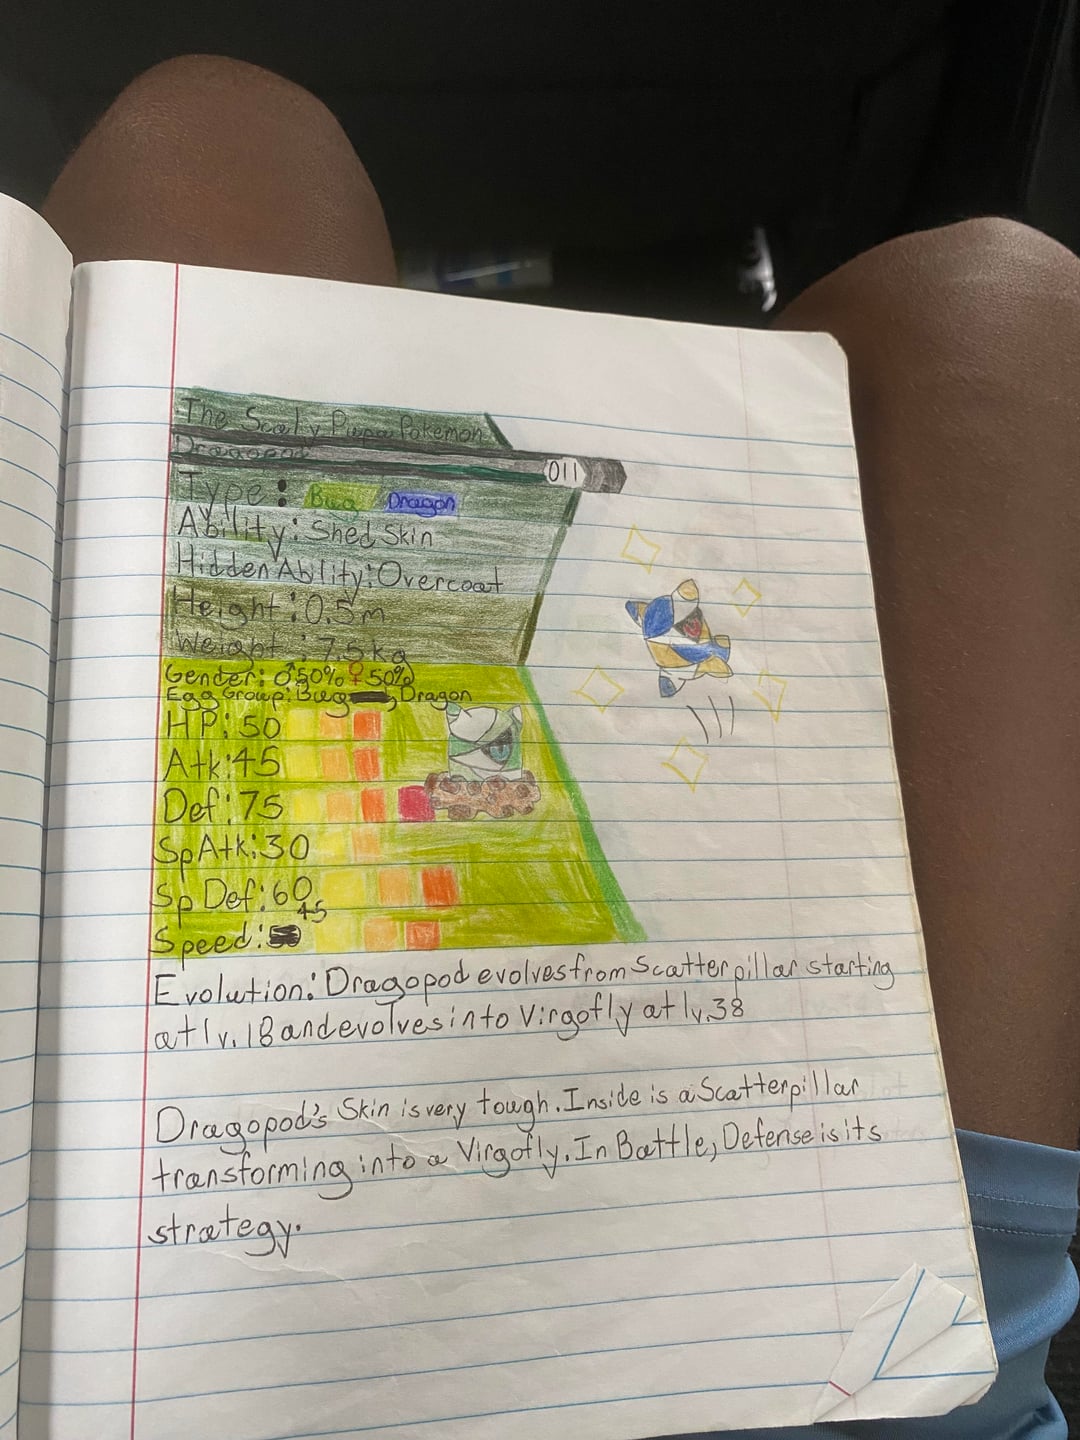 The Scaly Pupa Pokemon
Dragopod
011
Type: Bug Dragon
Ability: Shed Skin
Hidden Ability: Overcoat
Height: 0.5m
Weight: 7.5kg
Gender: ♂50% ♀50%
Egg Group: Bug, Dragon
HP: 50
Atk: 45
Def: 75
Sp Atk: 30
Sp Def: 60
Speed: 45
Evolution: Dragopod evolves from Scatterpillar starting
at lv. 18 and evolves into Virgofly at lv. 38
Dragopod's Skin is very tough. Inside is a Scatterpillar
transforming into a Virgofly. In Battle, Defense is its
strategy.